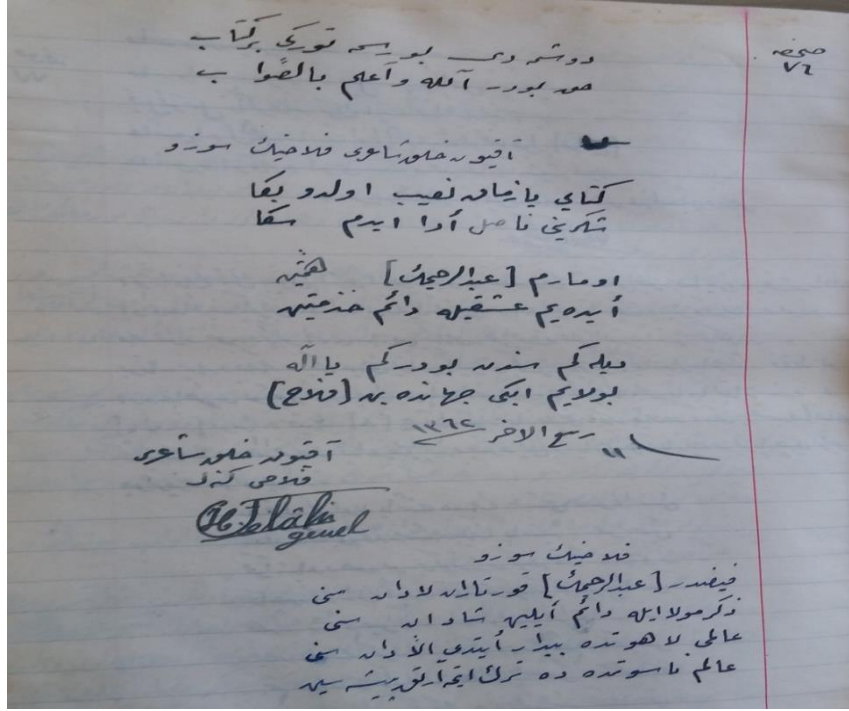 صحيفه
٧٦
دوشدى بو رسمه توركى بر كتاب
حق بودر الله وأعلم بالصواب
آفيون خلق شاعرى فلاحينك سوزو
كتابي يازمق نصيب اولدو بكا
شكرينى ناصل أدا ايدرم سكا
اومارم [عبدالرحيمك] همتين
أيده يم عشقيله دائم خذمتين
ديله كم سندن بودركم يا الله
بولايم ايكى جهانده بن [فلاح]
١١ ربيع الاخر ١٣٦٢
آفيون خلق شاعرى
فلاحى كنل
H. Felâhi
genel
فلاحينك سوزو
فيضدر [عبدالرحيمك] قورتاران لادان سنى
ذكر مولا ايله دائم أيلين شادان سنى
عالمى لاهوتده بيدار أيتدي الأدان سنى
عالم ناسوتده ده ترك ايتمه آرتق پيشه سين